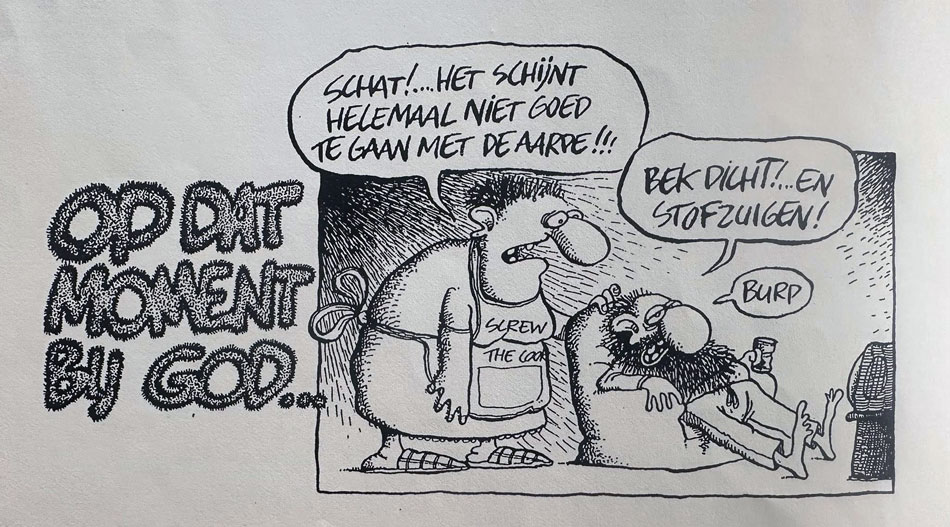 OP DAT
MOMENT
BIJ GOD...
SCHAT!...HET SCHIJNT
HELEMAAL NIET GOED
TE GAAN MET DE AARDE!!!
BEK DICHT!...EN
STOFZUIGEN!
BURP
SCREW
THE COOK